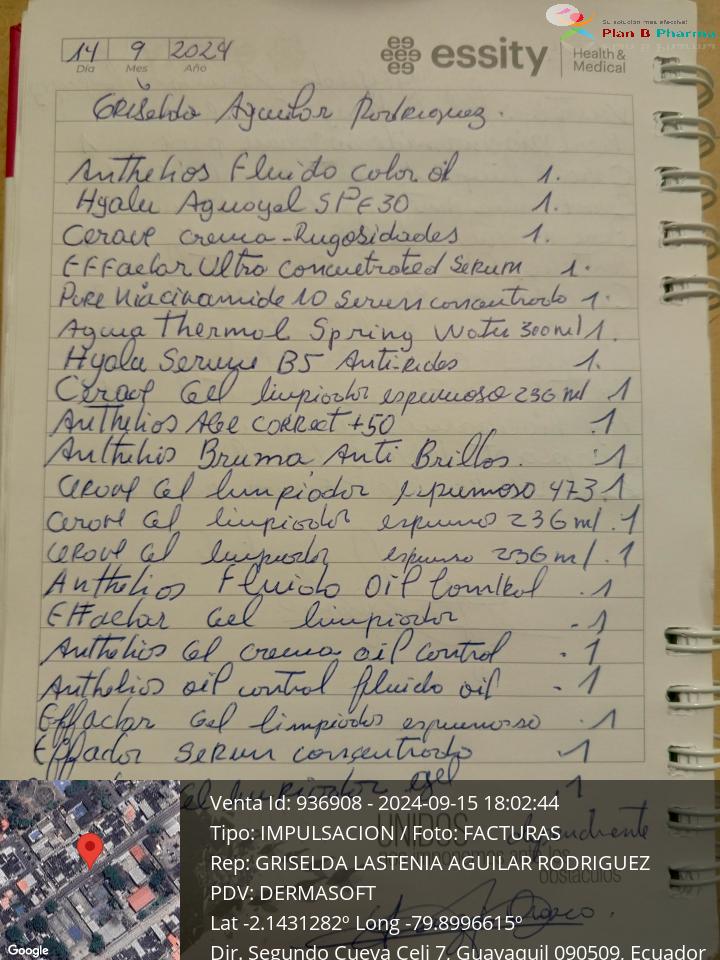 Su solución mas efectiva!
Plan B Pharma
14 9 2024
Día Mes Año
essity
Health &
Medical
Griselda Aguilar Rodriguez.
Anthelios Fluido color oil 1.
Hyalu Aguagel SPF30 1.
Cerave crema-Rugosidades 1.
EFFaclar Ultra Concuetrated Serum 1.
Pure Niacinamide 10 Serum concentrado 1.
Agua Thermal Spring Water 300ml 1.
Hyalu Serum B5 Anti-Rides 1.
Cerave Gel limpiador espumoso 236 ml 1
Anthelios Age correct +50 .1
Anthelios Bruma Anti Brillos. 1
Cerave Gel limpiador espumoso 473.1
Cerave Gel limpiador espumoso 236 ml .1
Cerave Gel limpiador espumoso 236 ml .1
Anthelios Fluido Oil Control .1
Effaclar Gel limpiador .1
Anthelios Gel crema oil control .1
Anthelios oil control fluido oil .1
Effaclar Gel limpiador espumosso .1
Effaclar Serum concentrado .1
Gel limpiador .1
Venta Id: 936908 - 2024-09-15 18:02:44
Tipo: IMPULSACION / Foto: FACTURAS
Rep: GRISELDA LASTENIA AGUILAR RODRIGUEZ
PDV: DERMASOFT
Lat -2.1431282º Long -79.8996615º
Dir. Segundo Cueva Celi 7, Guayaquil 090509, Ecuador
UNIDOS
obstáculos
Google